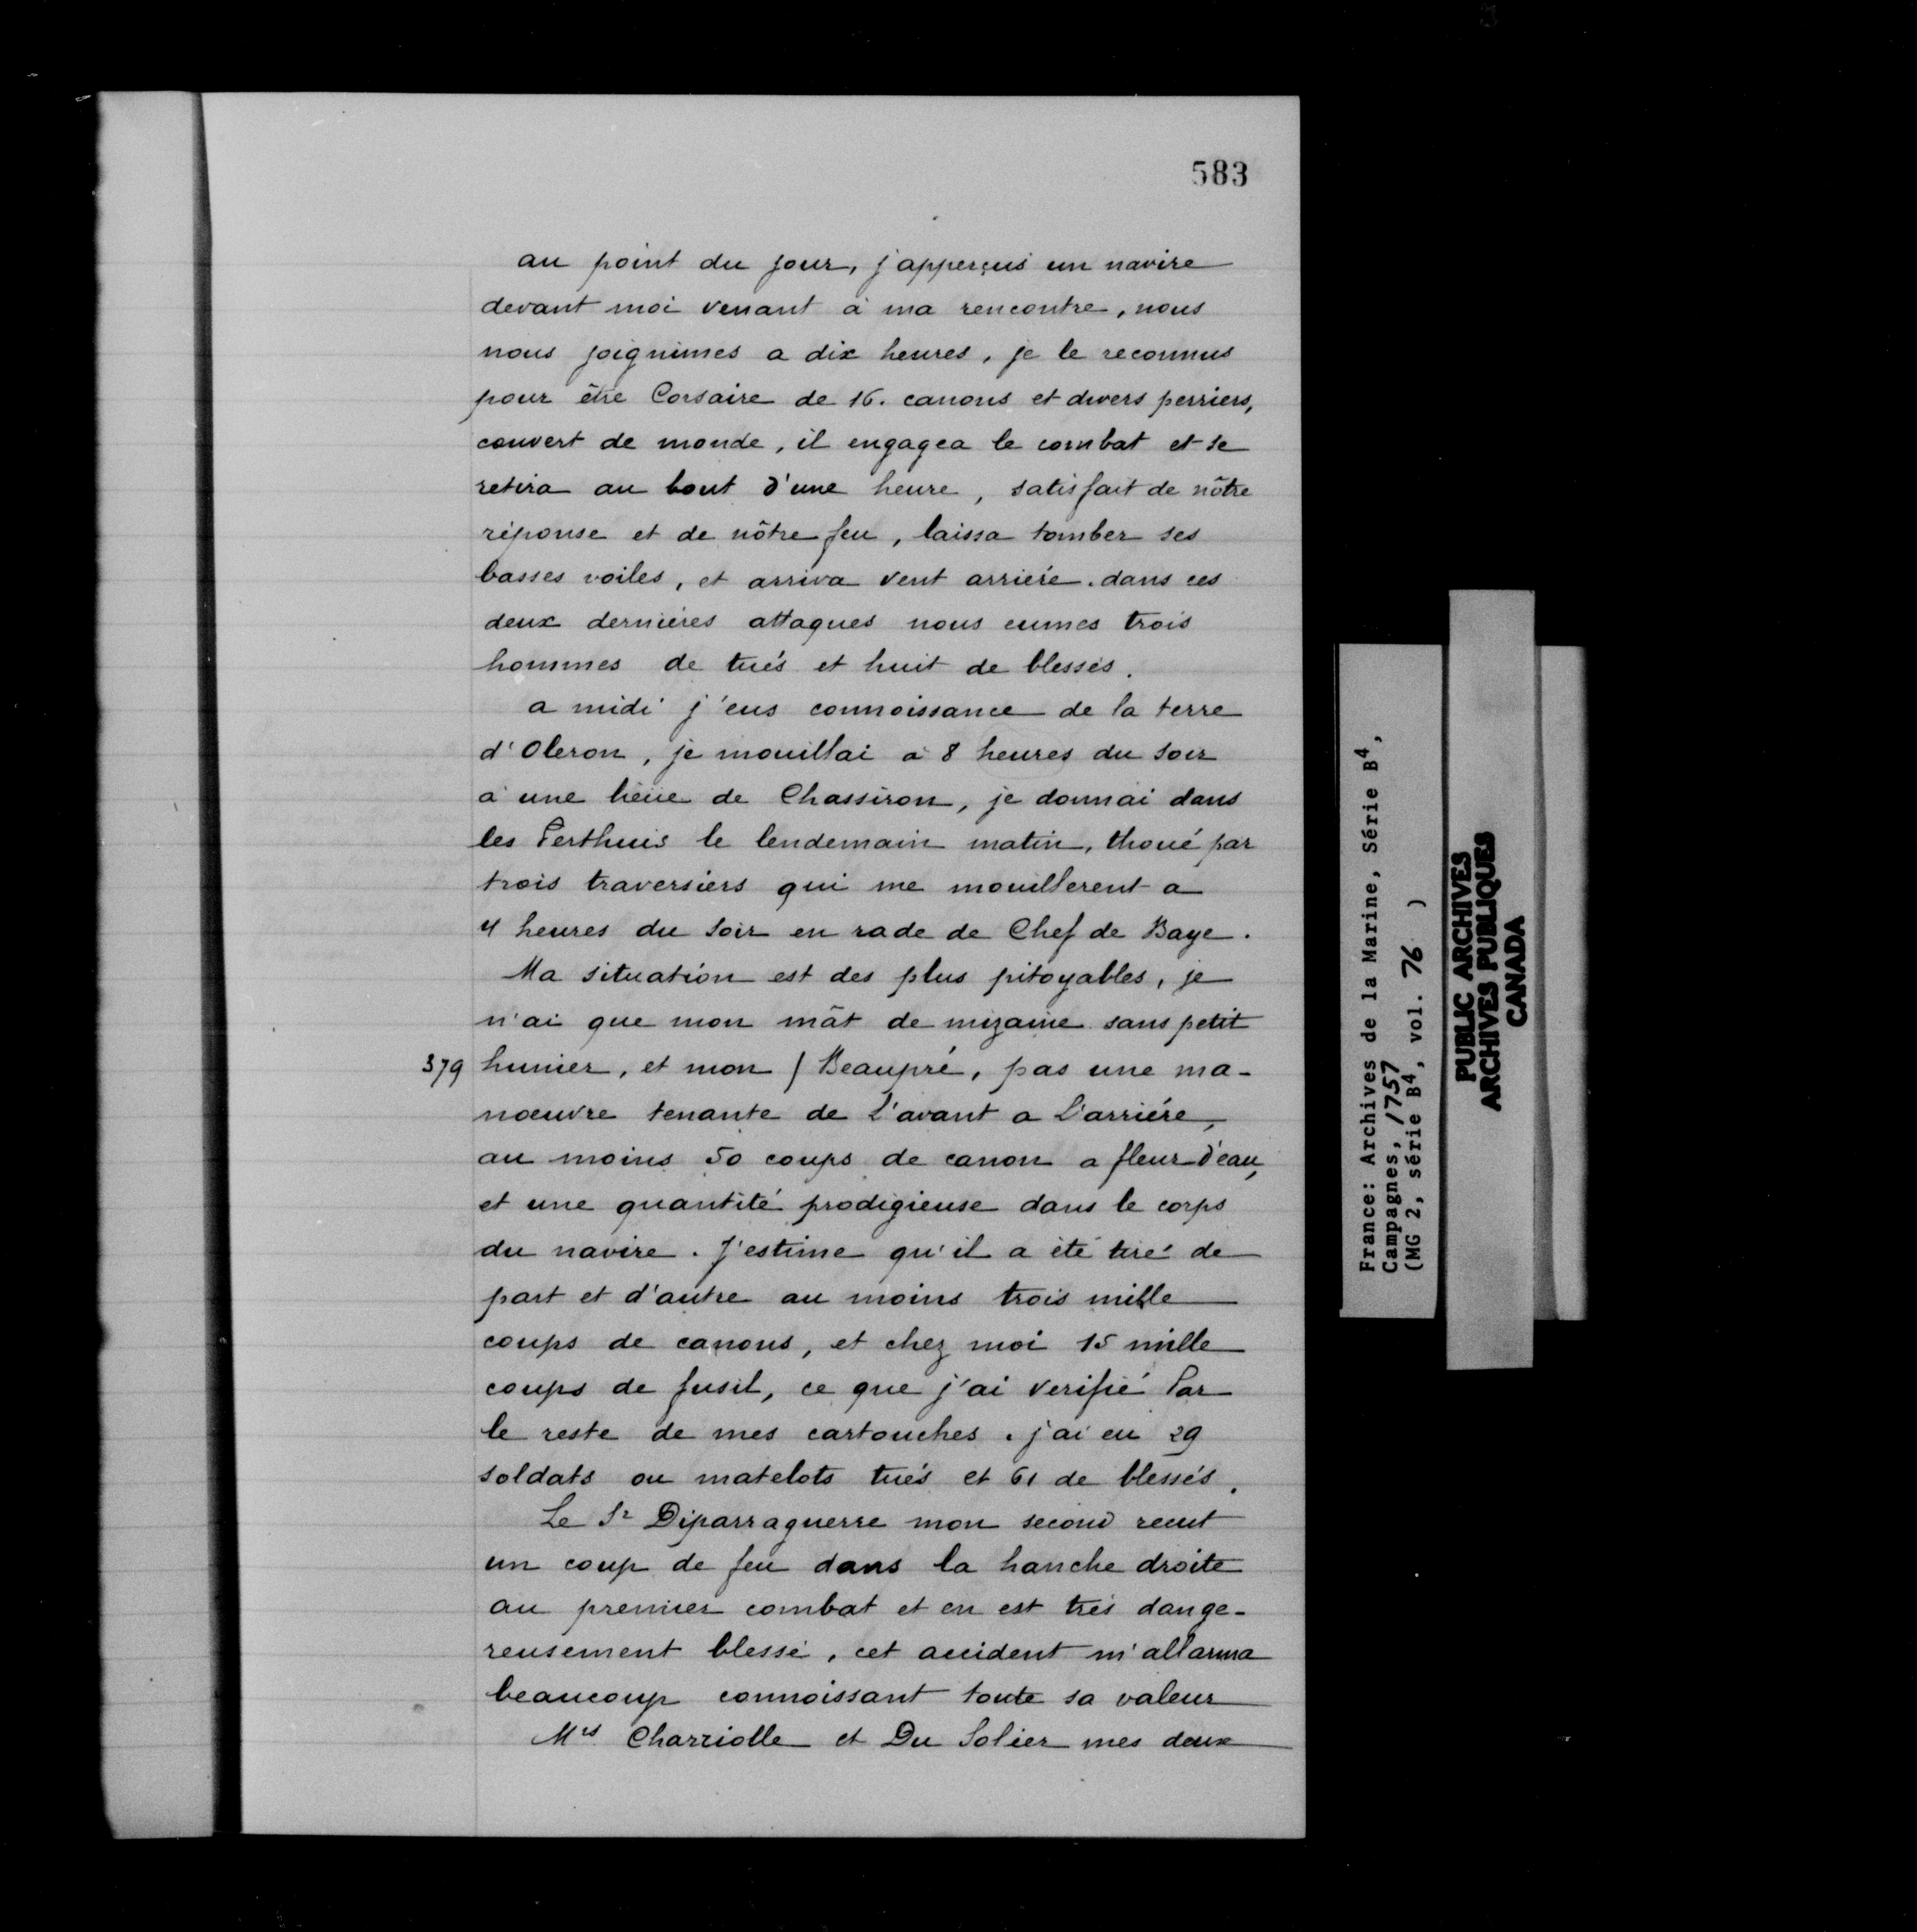 583
au point du jour, j'apperçus un navire
devant moi venant à ma rencontre, nous
nous joignimes a dix heures, je le reconnus
pour être Corsaire de 16. canons et divers perriers,
couvert de monde, il engagea le combat et se
retira au bout d'une heure, satisfait de nôtre
réponse et de nôtre feu, laissa tomber ses
basses voiles, et arriva vent arriére. dans ces
deux derniéres attaques nous eumes trois
hommes de tués et huit de blessés.
a midi j'eus connoissance de la terre
d'Oleron, je mouillai a 8 heures du soir
à une lieüe de Chassiron, je donnai dans
les Perthuis le lendemain matin, thoué par
trois traversiers qui me mouillerent a
4 heures du soir en rade de Chef de Baye.
Ma situation est des plus pitoyables, je
n'ai que mon mât de mizaine sans petit
379 hunier, et mon / Beaupré, pas une ma-
nœuvre tenante de l'avant a l'arriére,
au moins 50 coups de canon a fleur d'eau,
et une quantité prodigieuse dans le corps
du navire. J'estime qu'il a été tiré de
part et d'autre au moins trois mille
coups de canons, et chez moi 15 mille
coups de fusil, ce que j'ai verifié Par
le reste de mes cartouches. j'ai eu 29
soldats ou matelots tués et 61 de blessés.
Le Sr Diparraguerre mon second recut
un coup de feu dans la hanche droite
au premier combat et en est trés dange-
reusement blessé, cet accident m'allarma
beaucoup connoissant toute sa valeur
Mrs Charriolle et Du Solier mes deux
France: Archives de la Marine, Série B4,
Campagnes, 1757
(MG 2, série B4, vol. 76 )
PUBLIC ARCHIVES
ARCHIVES PUBLIQUES
CANADA